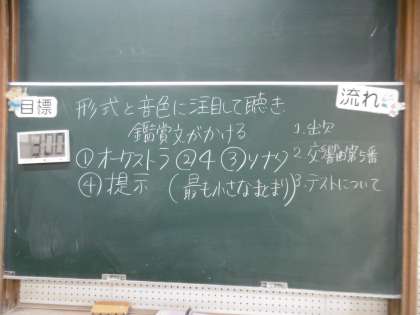 目標
形式と音色に注目して聴き
鑑賞文がかける
①オーケストラ ②4 ③ソナタ
④提示 (最も小さなまとまり)
流れ
1.出欠
2.交響曲第5番
3.テストについて